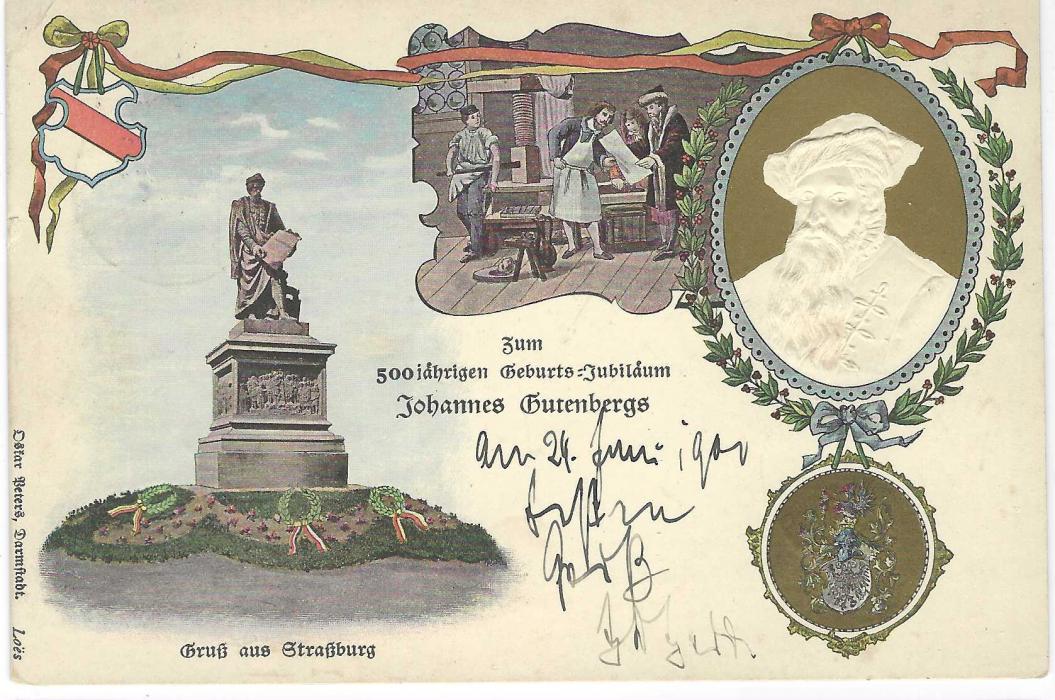 Zum
500jährigen Geburts=Jubiläum
Johannes Gutenbergs
am 24. Juni 1900
besten
Gruß
Gruß aus Straßburg
Oskar Peters, Darmstadt. Loës